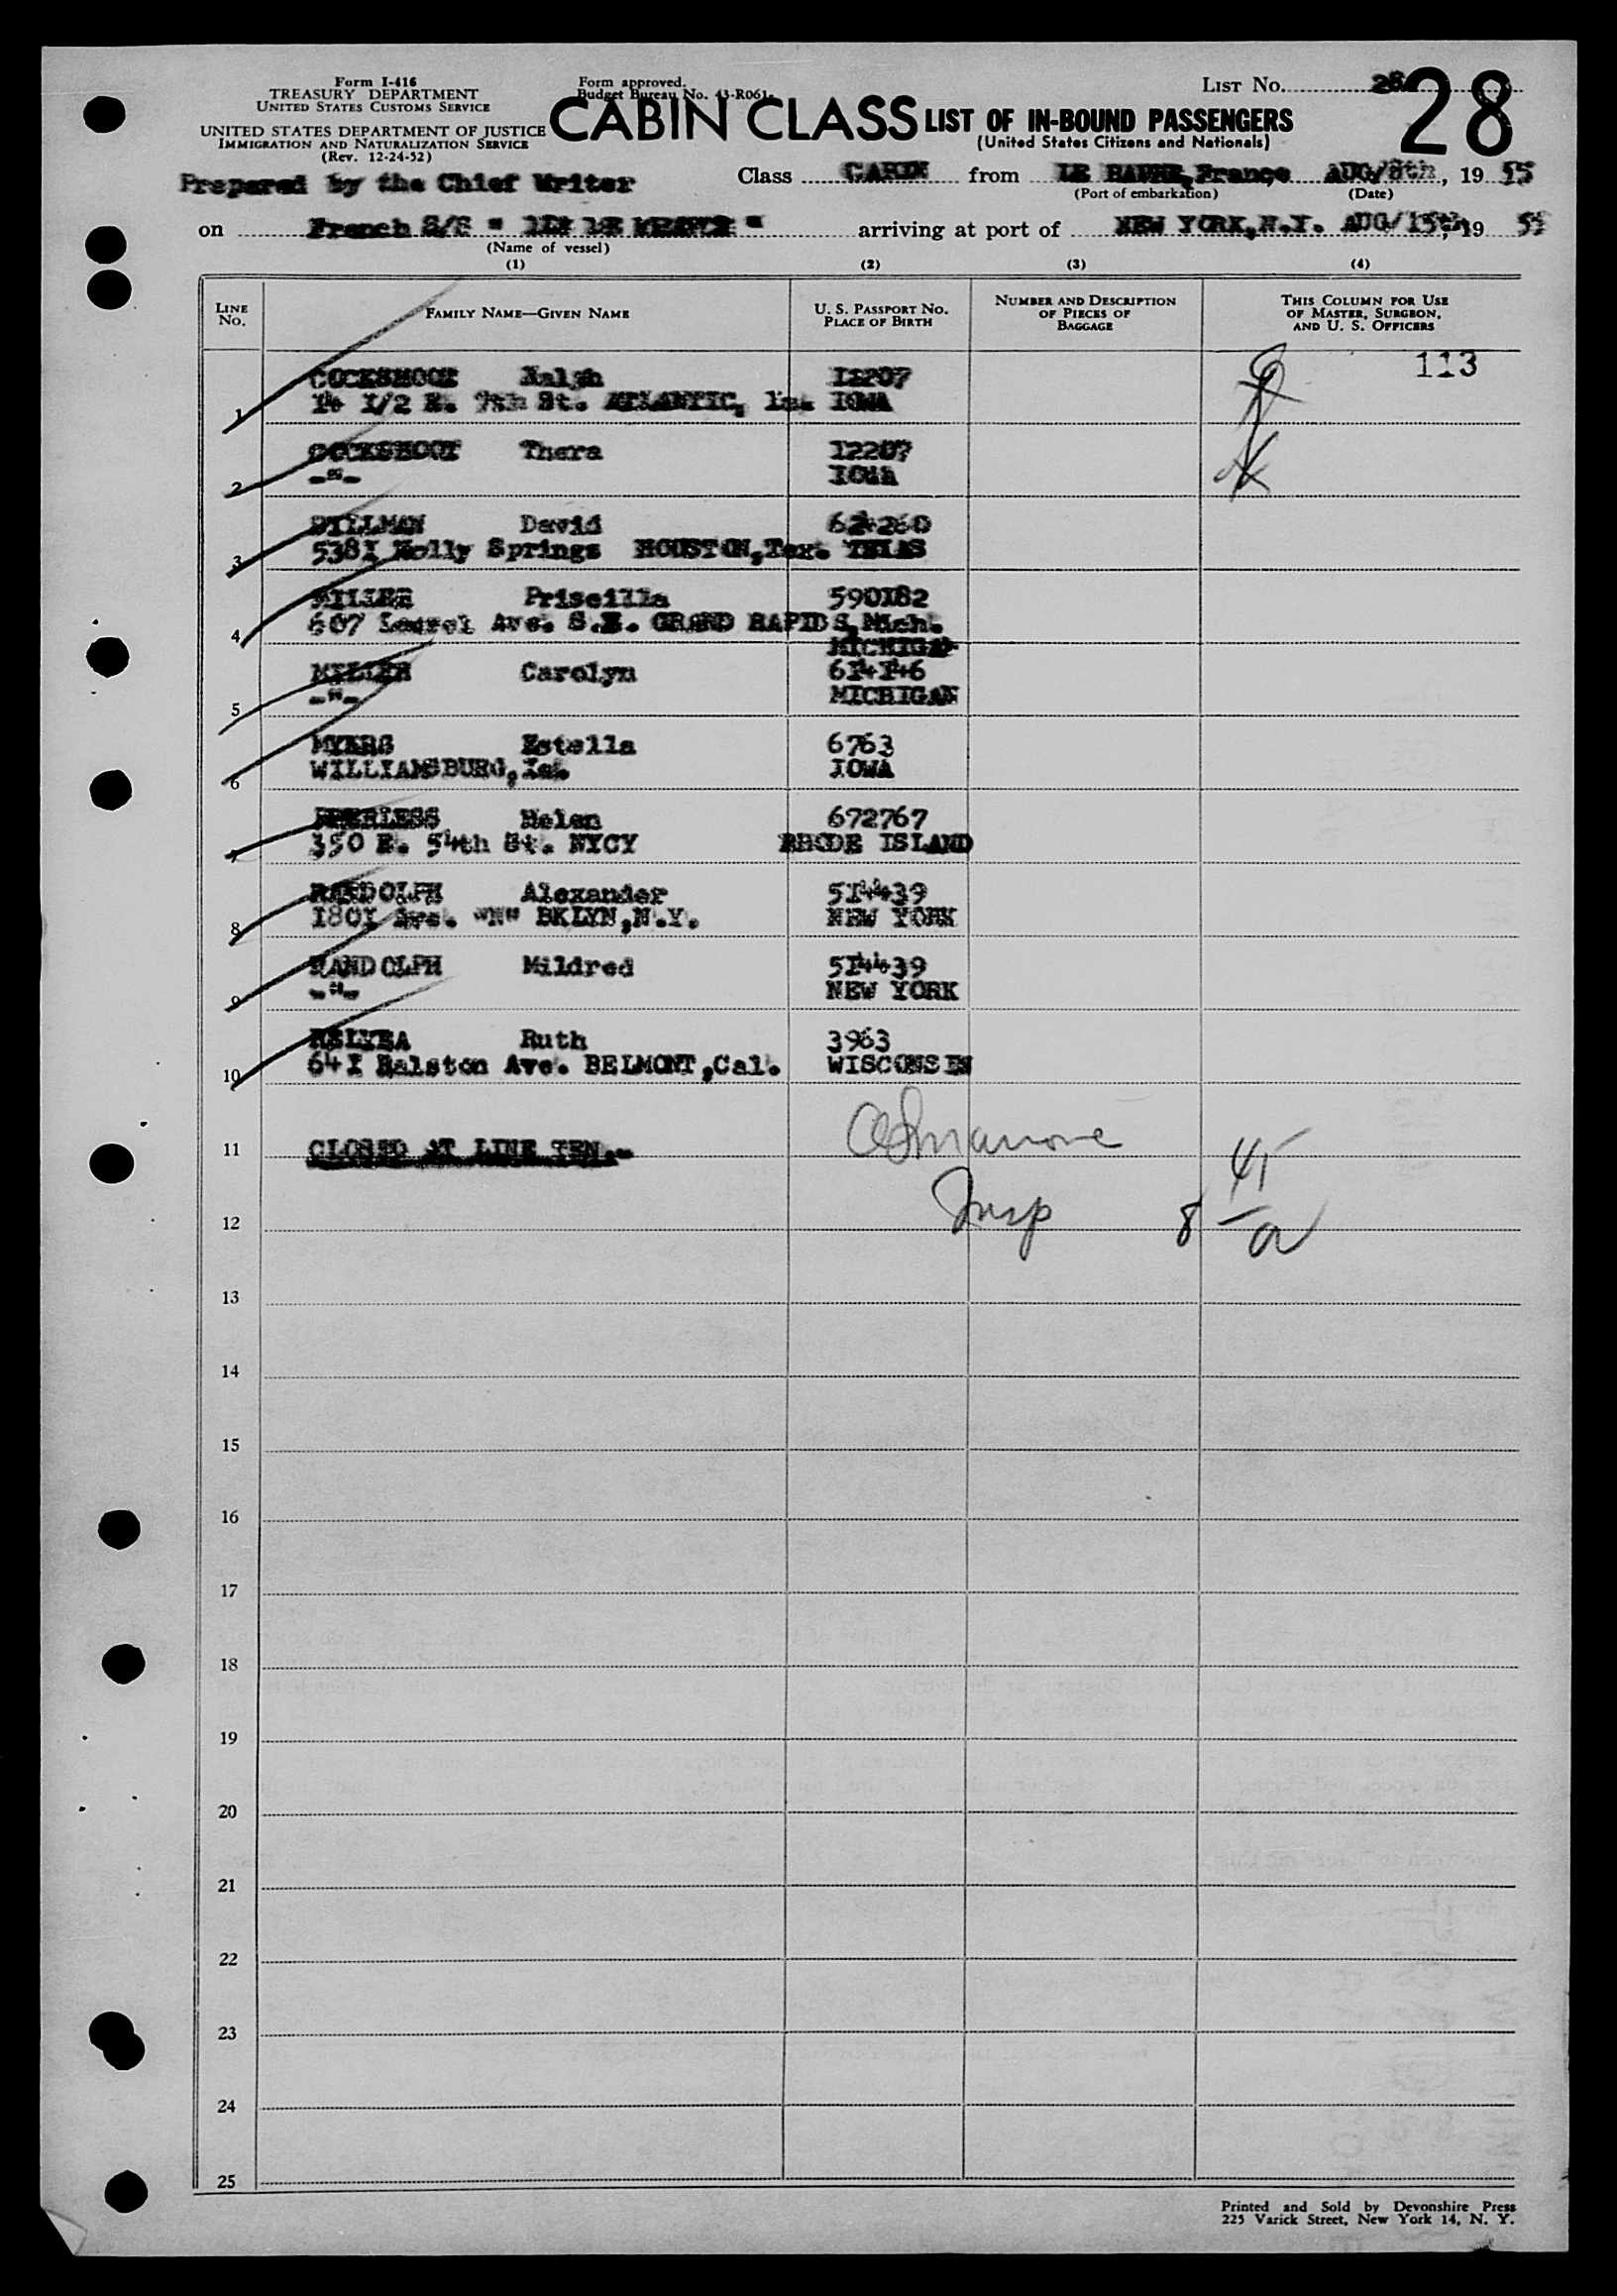 Form I-416
TREASURY DEPARTMENT
UNITED STATES CUSTOMS SERVICE
UNITED STATES DEPARTMENT OF JUSTICE
IMMIGRATION AND NATURALIZATION SERVICE
(Rev. 12-24-52)
Form approved.
Budget Bureau No. 43-R061
CABIN CLASS LIST OF IN-BOUND PASSENGERS
(United States Citizens and Nationals)
LIST No. 28 28
Prepared by the Chief Writer
Class CABIN from LE HAVRE, France AUG/8th, 19 55
(Port of embarkation) (Date)
on French S/S " ILE DE FRANCE " arriving at port of NEW YORK,N.Y. AUG/15th, 19 55
(Name of vessel)
(1) (2) (3) (4)
LINE No. FAMILY NAME—GIVEN NAME U. S. PASSPORT No. PLACE OF BIRTH NUMBER AND DESCRIPTION OF PIECES OF BAGGAGE THIS COLUMN FOR USE OF MASTER, SURGEON, AND U. S. OFFICERS
113
COCKSHOOT Ralph I2207
1 14 I/2 E. 7th St. ATLANTIC, Ia. IOWA
COCKSHOOT Thera I2207
2 -"- IOWA
David 624260
3 538I Holly Springs HOUSTON,Tex. TEXAS
MILLER Priscilla 590I82
4 607 Laurel Ave. S.E. GRAND RAPIDS,Mich.
MICHIGAN
MILLER Carolyn 6I4I46
5 -"- MICHIGAN
MYERS Estella 6763
6 WILLIAMSBURG,Ia. IOWA
PEERLESS Helen 672767
7 350 E. 54th St. NYCY RHODE ISLAND
RANDOLPH Alexander 5I4439
8 I80I Ave. "N" BKLYN,N.Y. NEW YORK
RANDOLPH Mildred 5I4439
9 -"- NEW YORK
RELYEA Ruth 3963
10 64I Ralston Ave. BELMONT,Cal. WISCONSIN
11 CLOSED AT LINE TEN.-
Insp 8
12
13
14
15
16
17
18
19
20
21
22
23
24
25
Printed and Sold by Devonshire Press
225 Varick Street, New York 14, N. Y.